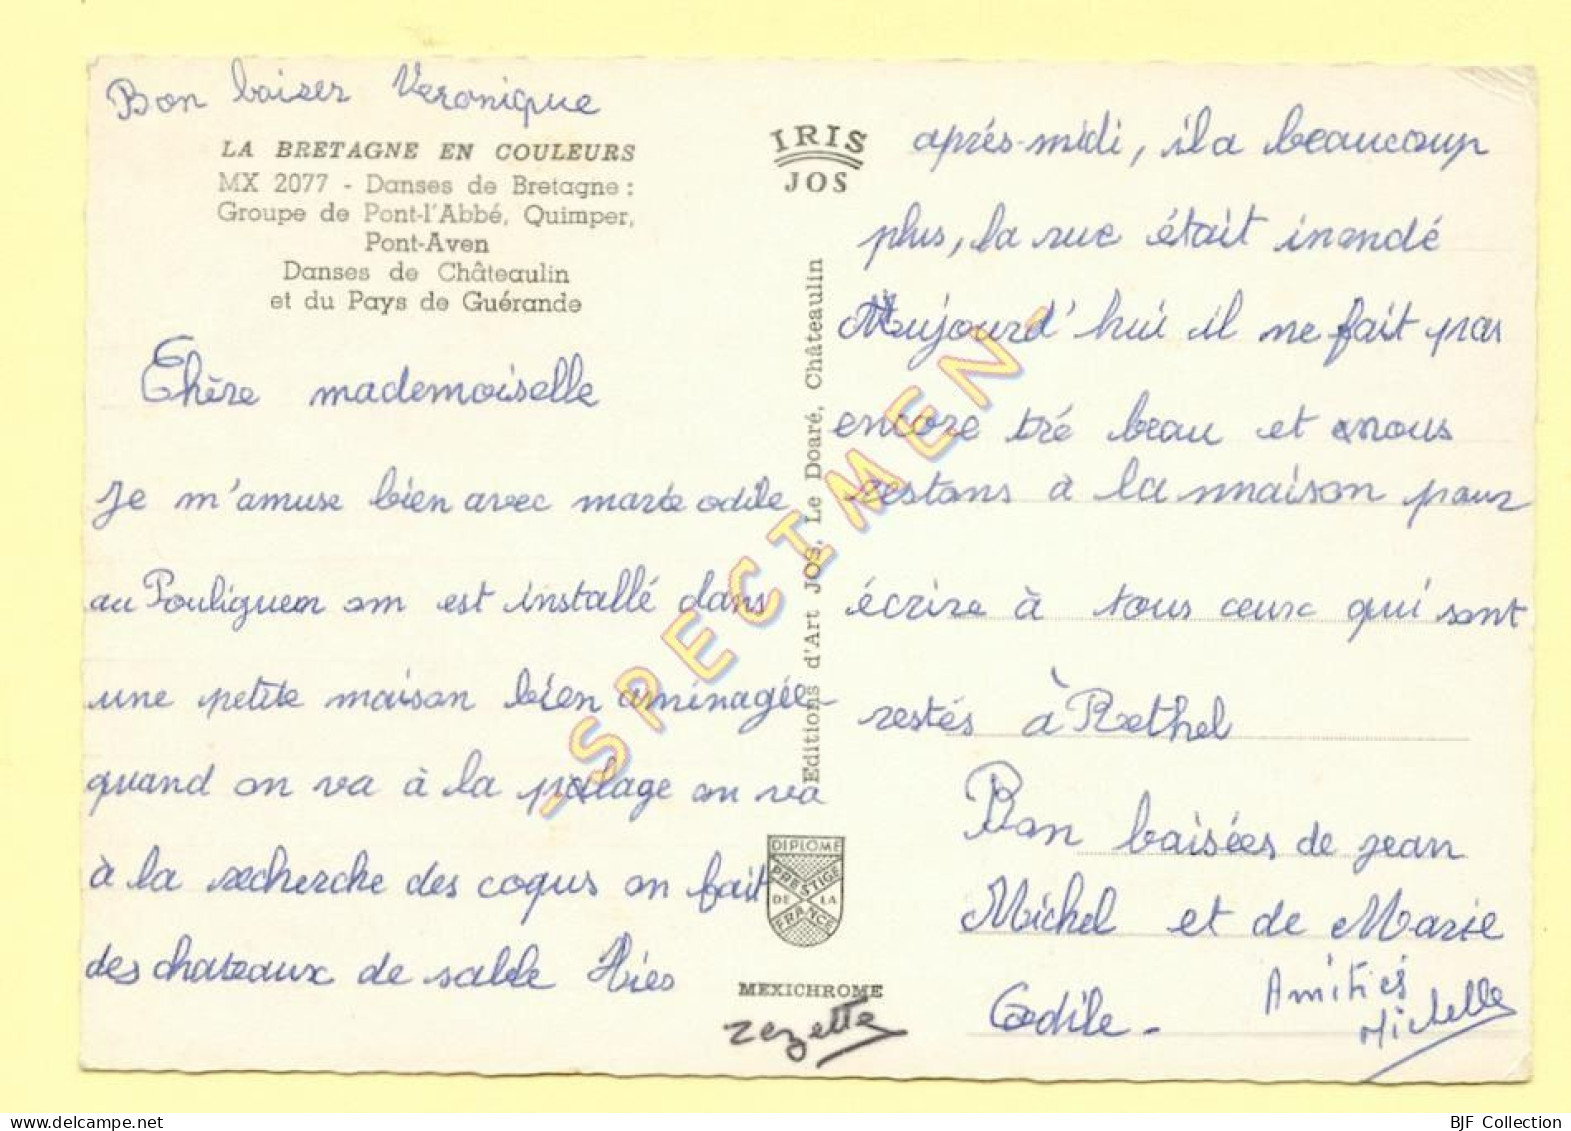 Bon baiser Veronique
LA BRETAGNE EN COULEURS
MX 2077 - Danses de Bretagne :
Groupe de Pont-l'Abbé, Quimper,
Pont-Aven
Danses de Châteaulin
et du Pays de Guérande
Chère mademoiselle
Je m'amuse bien avec marie odile
au Pouliguen on est installé dans
une petite maison bien aménagée
quand on va à la plage on va
à la recherche des coqus on fait
des chateaux de sable Hies
IRIS
JOS
Editions d'Art JOS, Le Doaré, Châteaulin
DIPLOME
PRESTIGE
DE LA
FRANCE
MEXICHROME
zezette
après-midi, il a beaucoup
plus, la rue était inondé
Aujourd'hui il ne fait pas
encore tré beau et nous
restons à la maison pour
écrire à tous ceux qui sont
restés à Rethel
Bon baisées de jean
Michel et de Marie
Odile -
Amitiés
Michelle
- SPECIMEN -
BJF Collection
www.delcampe.net